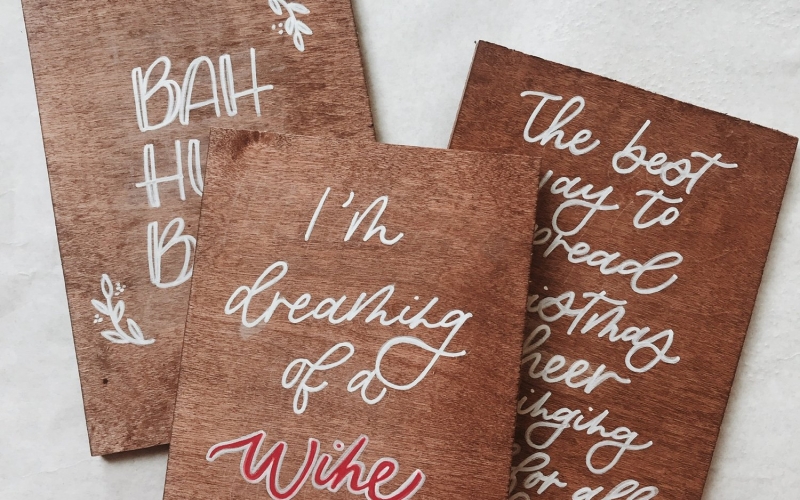 BAH
HU
B
I'm
dreaming
of a
Wine
The best
way to
pread
istmas
heer
inging
for all